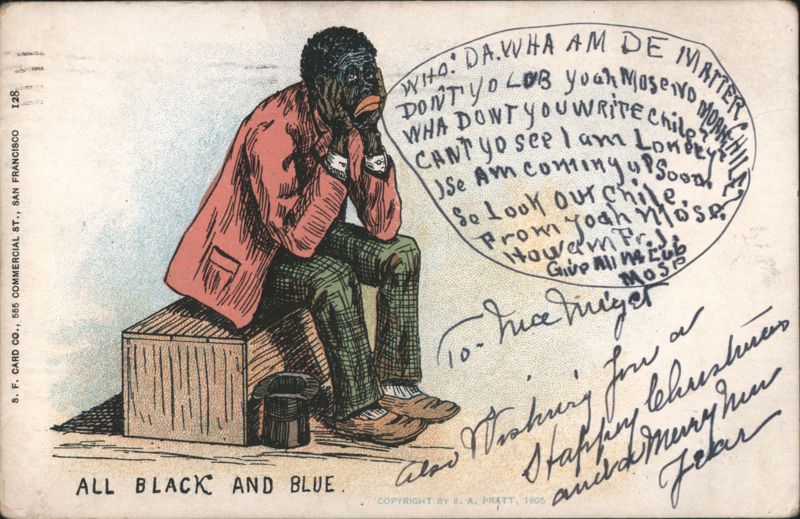 WHO! DA. WHA AM DE MATTER CHILE?
DON'T YO LOB yoah MOSE NO MOAH
WHA DONT YOU WRITE Chile?
CANT YO SEE I am Lonely?
Ise Am Coming up Soon
So Look Out Chile.
From yoah Mose.
How am Fr. J.
Give All ma Lub
Mose
To - Mae Midget
also Wishing You a
Happy Christmas
and a Merry New
Year
ALL BLACK AND BLUE.
COPYRIGHT BY S. A. PRATT, 1905
S. F. CARD CO., 555 COMMERCIAL ST., SAN FRANCISCO 128